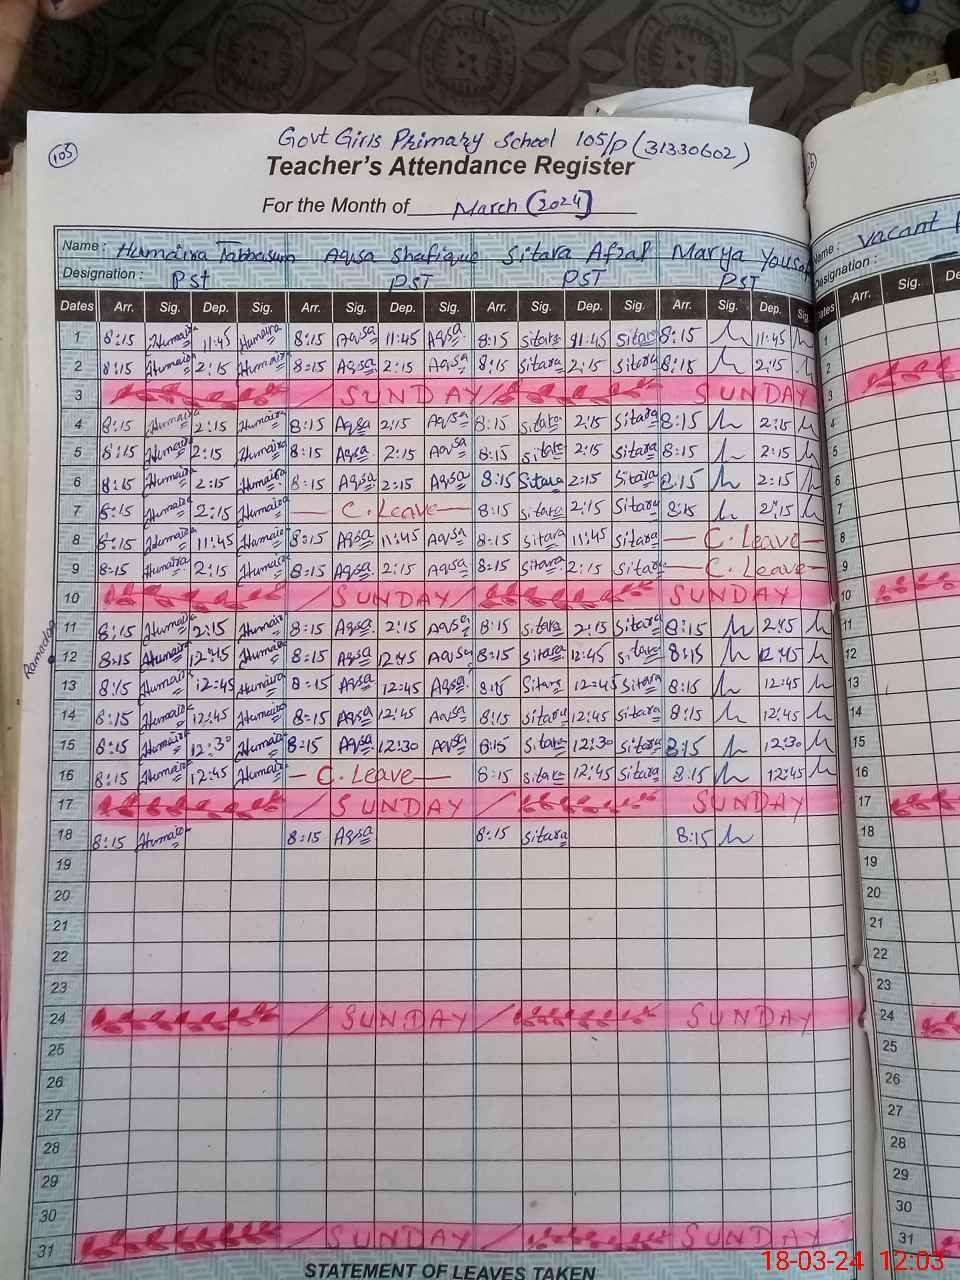 105
Govt Girls Primary School 105/P (31330602)
Teacher's Attendance Register
For the Month of March (2024)
Name : Humaira Tabbasum Aqsa Shafique Sitara Afzal Marya Yousaf
Designation : Pst PST PST PST
Dates Arr. Sig. Dep. Sig. Arr. Sig. Dep. Sig. Arr. Sig. Dep. Sig. Arr. Sig. Dep. Sig.
1 8:15 Humaira 11:45 Humaira 8:15 Aqsa 11:45 Aqsa 8:15 Sitara 11:45 Sitara 8:15 11:45
2 8:15 Humaira 2:15 Humaira 8:15 Aqsa 2:15 Aqsa 8:15 Sitara 2:15 Sitara 8:15 2:15
3 / SUNDAY / SUNDAY
4 8:15 Humaira 2:15 Humaira 8:15 Aqsa 2:15 Aqsa 8:15 Sitara 2:15 Sitara 8:15 2:15
5 8:15 Humaira 2:15 Humaira 8:15 Aqsa 2:15 Aqsa 8:15 Sitara 2:15 Sitara 8:15 2:15
6 8:15 Humaira 2:15 Humaira 8:15 Aqsa 2:15 Aqsa 8:15 Sitara 2:15 Sitara 8:15 2:15
7 8:15 Humaira 2:15 Humaira — C. Leave — 8:15 Sitara 2:15 Sitara 8:15 2:15
8 8:15 Humaira 11:45 Humaira 8:15 Aqsa 11:45 Aqsa 8:15 Sitara 11:45 Sitara — C. Leave —
9 8:15 Humaira 2:15 Humaira 8:15 Aqsa 2:15 Aqsa 8:15 Sitara 2:15 Sitara — C. Leave —
10 / SUNDAY / SUNDAY
11 8:15 Humaira 2:15 Humaira 8:15 Aqsa 2:15 Aqsa 8:15 Sitara 2:15 Sitara 8:15
Ramadan
12 8:15 Humaira 12:45 Humaira 8:15 Aqsa 12:45 Aqsa 8:15 Sitara 12:45 Sitara 8:15 12:45
13 8:15 Humaira 12:45 Humaira 8:15 Aqsa 12:45 Aqsa 8:15 Sitara 12:45 Sitara 8:15 12:45
14 8:15 Humaira 12:45 Humaira 8:15 Aqsa 12:45 Aqsa 8:15 Sitara 12:45 Sitara 8:15 12:45
15 8:15 Humaira 12:30 Humaira 8:15 Aqsa 12:30 Aqsa 8:15 Sitara 12:30 Sitara 8:15 12:30
16 8:15 Humaira 12:45 Humaira — C. Leave — 8:15 Sitara 12:45 Sitara 8:15 12:45
17 / SUNDAY / SUNDAY
18 8:15 Humaira 8:15 Aqsa 8:15 Sitara 8:15
19
20
21
22
23
24 / SUNDAY / SUNDAY
25
26
27
28
29
30
31 / SUNDAY / SUNDAY
STATEMENT OF LEAVES TAKEN
Name : Vacant
Designation :
Dates Arr. Sig.
1
2
3
4
5
6
7
8
9
10
11
12
13
14
15
16
17
18
19
20
21
22
23
24
25
26
27
28
29
30
31
18-03-24 12:03